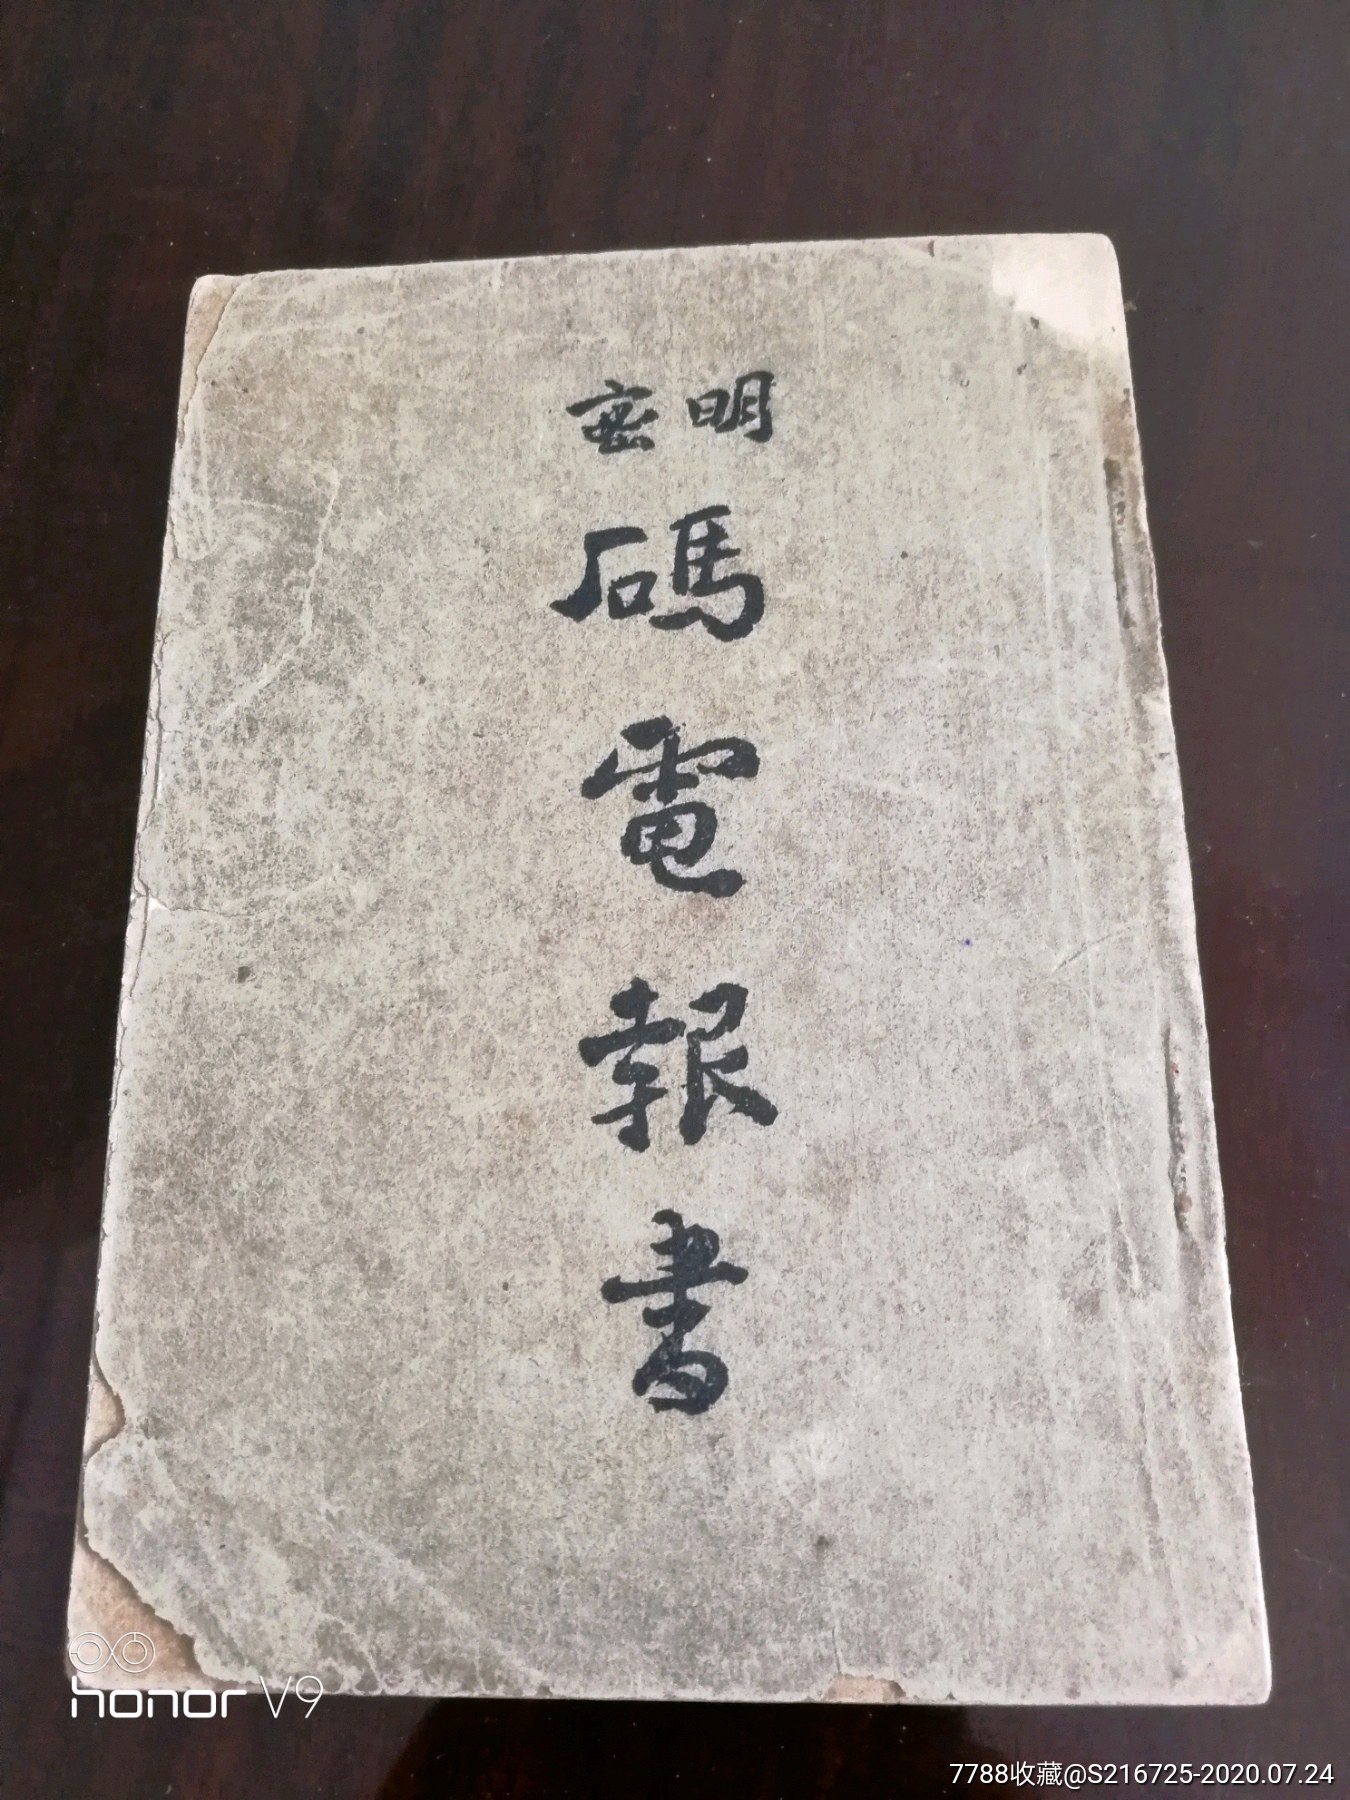 明密
碼電報書
honor V9
7788收藏@S216725-2020.07.24